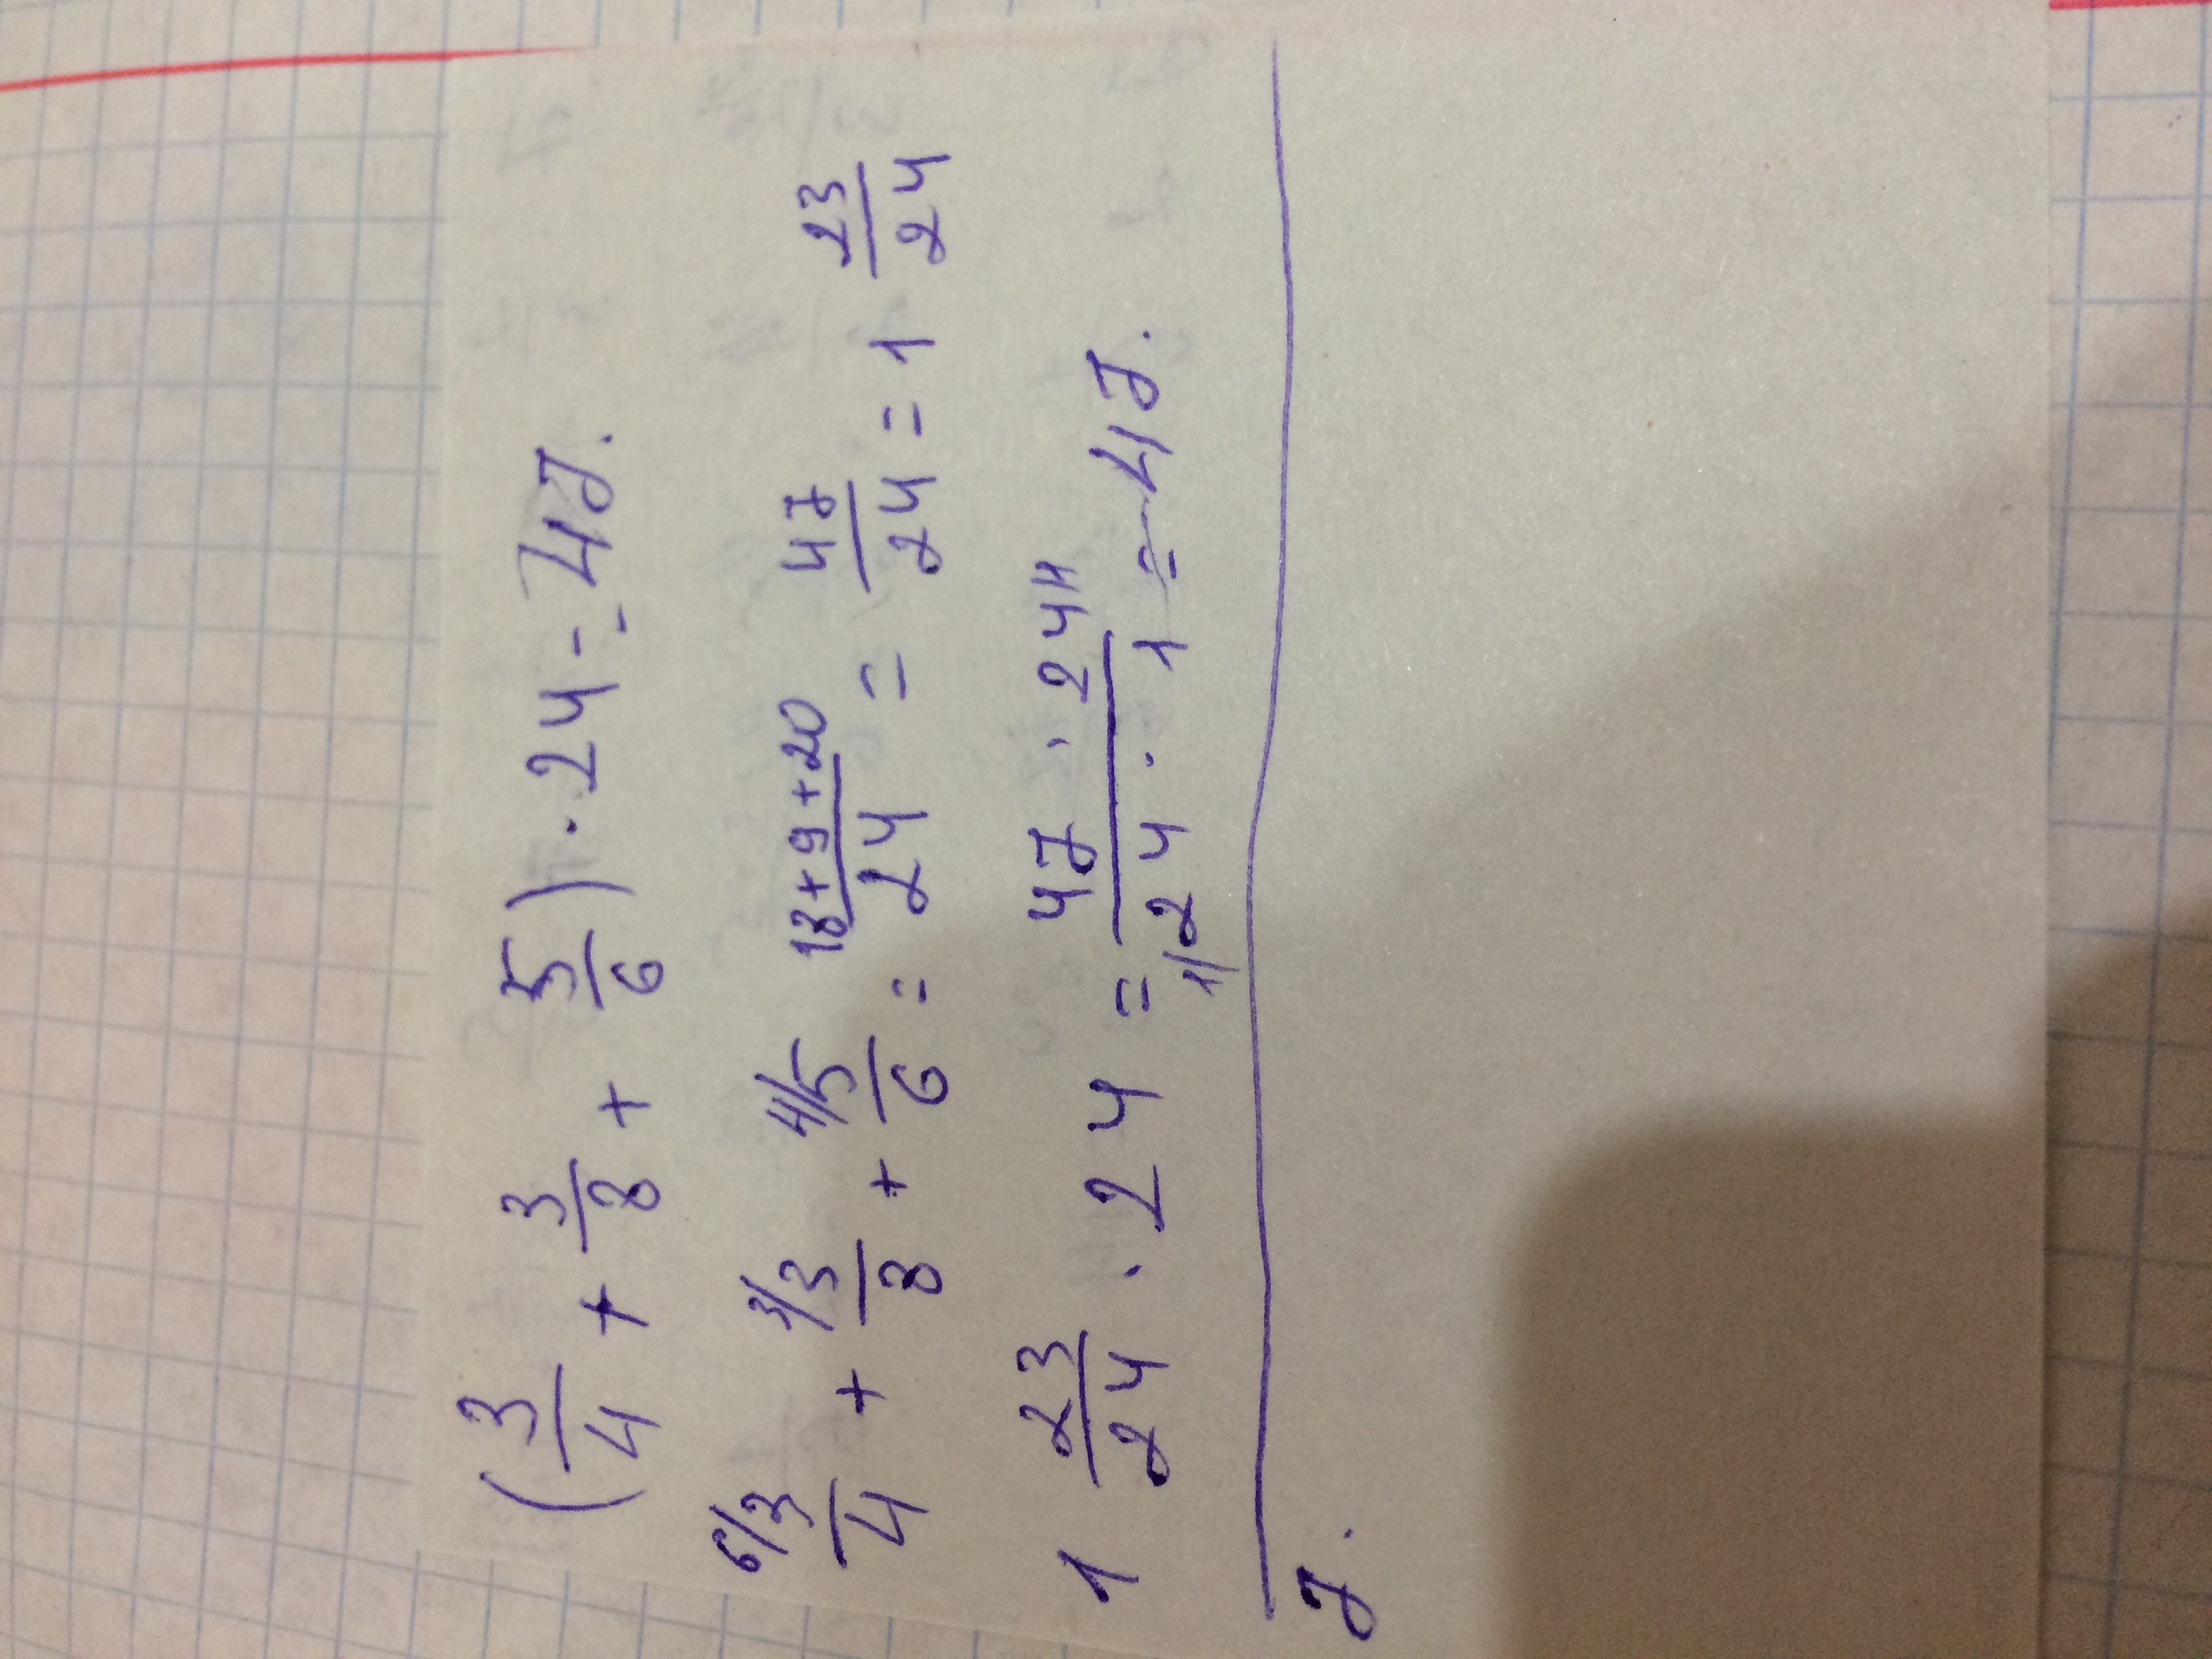 (3/4 + 3/8 + 5/6) · 24 = 47.
6/ 3/4 + 3/ 3/8 + 4/ 5/6 = 18+9+20/24 = 47/24 = 1 23/24
1 23/24 · 24 = 47 · 24 /1 / 1/ 24 · 1 = 47.
7.